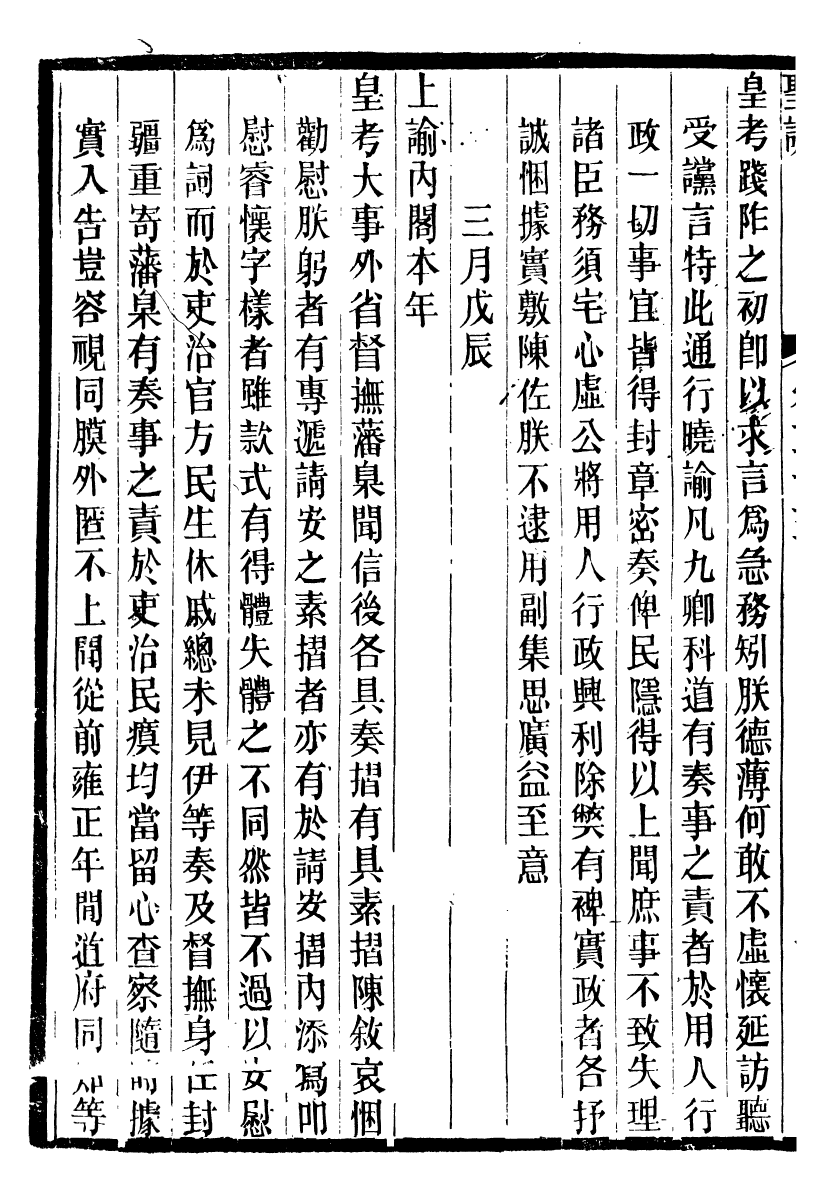 皇考踐阼之初卽以求言爲急務矧朕德薄何敢不虛懷延訪聽
受讜言特此通行曉諭凡九卿科道有奏事之責者於用人行
政一切事宜皆得封章密奏俾民隱得以上聞庶事不致失理
諸臣務須宅心虛公將用人行政興利除獘有裨實政者各抒
誠悃據實敷陳佐朕不逮用副集思廣益至意
三月戊辰
上諭內閣本年
皇考大事外省督撫藩臬聞信後各具奏摺有具素摺陳敘哀悃
勸慰朕躬者有專遞請安之素摺者亦有於請安摺內添寫叩
慰睿懷字樣者雖款式有得體失體之不同然皆不過以安慰
爲詞而於吏治官方民生休戚總未見伊等奏及督撫身任封
疆重寄藩臬有奏事之責於吏治民瘼均當留心查察隨時據
實入告豈容視同膜外匿不上聞從前雍正年閒道府同知等